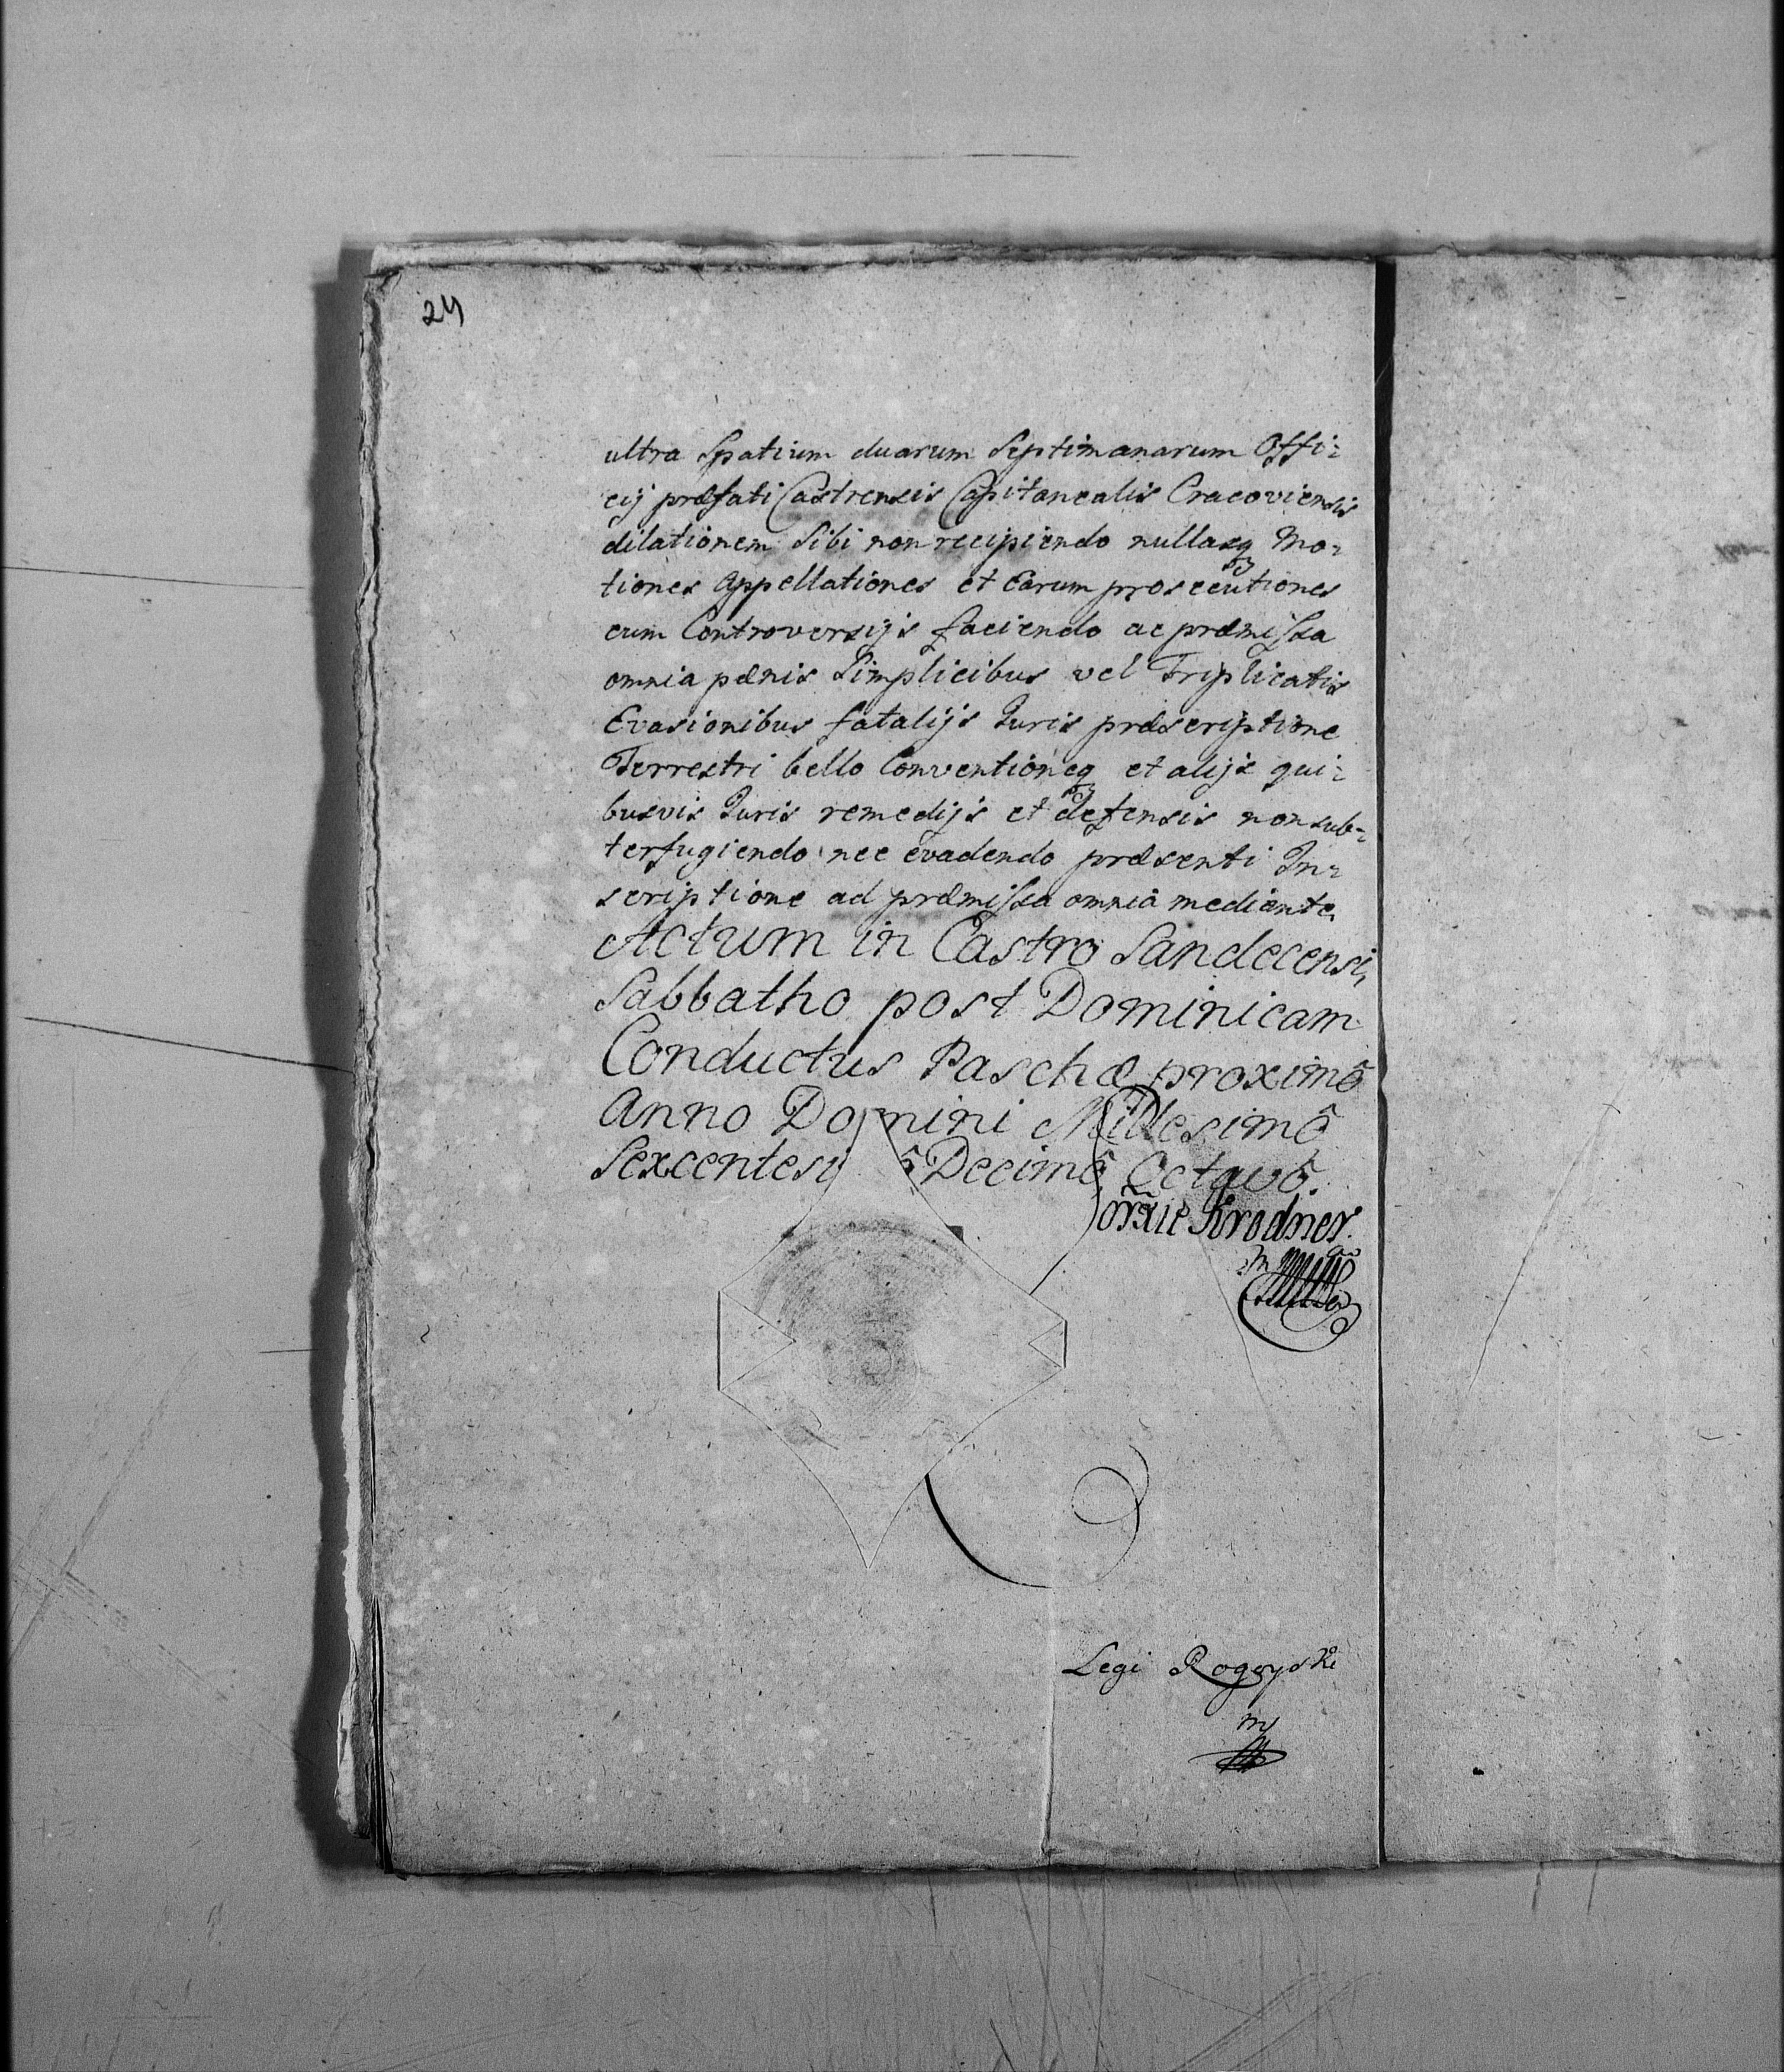 24
ultra Spatium duarum Septimanarum Offi=
cij præfati Castrensis Capitanealis Cracoviensis
dilationem Sibi non recipiendo nullasq3 Mo=
tiones Appellationes et Earum prosecutiones
cum Controversijs faciendo ac præmissa
omnia pænis Simplicibus vel Triplicatis
Evasionibus fatalijs Juris præscriptione
Terrestri bello Conventioneq3 et alijs qui=
busvis Juris remedijs et defensis non sub=
terfugiendo nec evadendo præsenti In=
scriptione ad præmissa omnia mediante.
Actum in Castro Sandecensi,
Sabbatho post Dominicam
Conductus Paschæ proximô
Anno Domini Millesimô
Sexcentesi ô Decimô Octavô.
Krodner.
Legi Rogoyski
mp